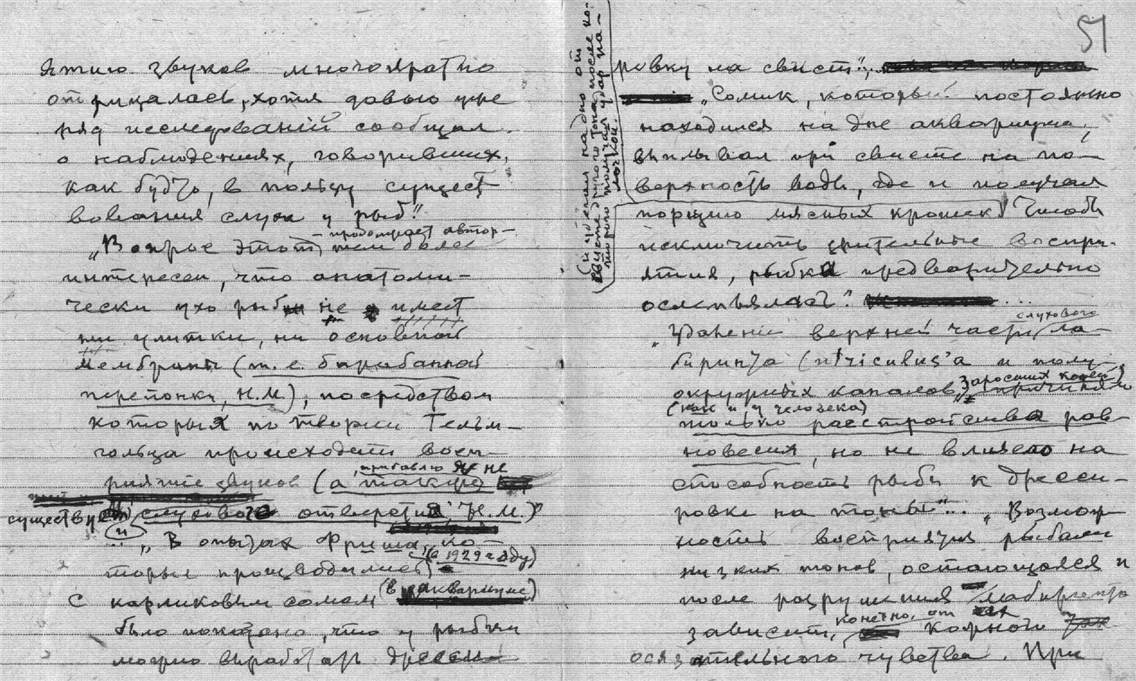 ятию звуков многократно
отрицалась, хотя довольно уже
ряд исследований сообщал
о наблюдениях, говоривших,
как будто, в пользу сущест
вования слуха у рыб."
- продолжает автор -
„Вопрос этот тем более
интересен, что анатоми-
чески ухо рыб не имеет
ни улитки, ни основной
мембраны (т.е. барабанной
перепонки, Н.М.), посредством
которых по теории Гельм-
гольца происходит вос-
приятие звуков (а также, прибавлю я, не
существует слухового отверстия Н.М.)"
и
... „В опытах Фриша, ко-
торые производились (в 1929 году)
с карликовым сомом (в аквариуме)
было показано, что у рыбки
можно выработать дресси-
51
ровку на свист"...
„Сомик, который постоянно
находился на дне аквариума,
выплывал при свисте на по-
верхность воды, где и получал
порцию мясных крошек
(и уходил на дно от
звуста другого тона, после ко-
торого получал удар па-
лочкой.
Чтобы
исключить зрительные воспри-
ятия, рыбка предварительно
ослеплялась" ...
„Удаление верхней части слухового ла-
биринта (utriculus'а и полу-
окружных каналов,
(как и у человека)
только расстройства рав-
новесия, но не влияло на
способность рыбы к дресси-
ровке на тоны"... „Возмож-
ность восприятия рыбами
низких тонов, остающаяся и
после разрушения лабиринта
зависит, конечно, от кожного
осязательного чувства. При